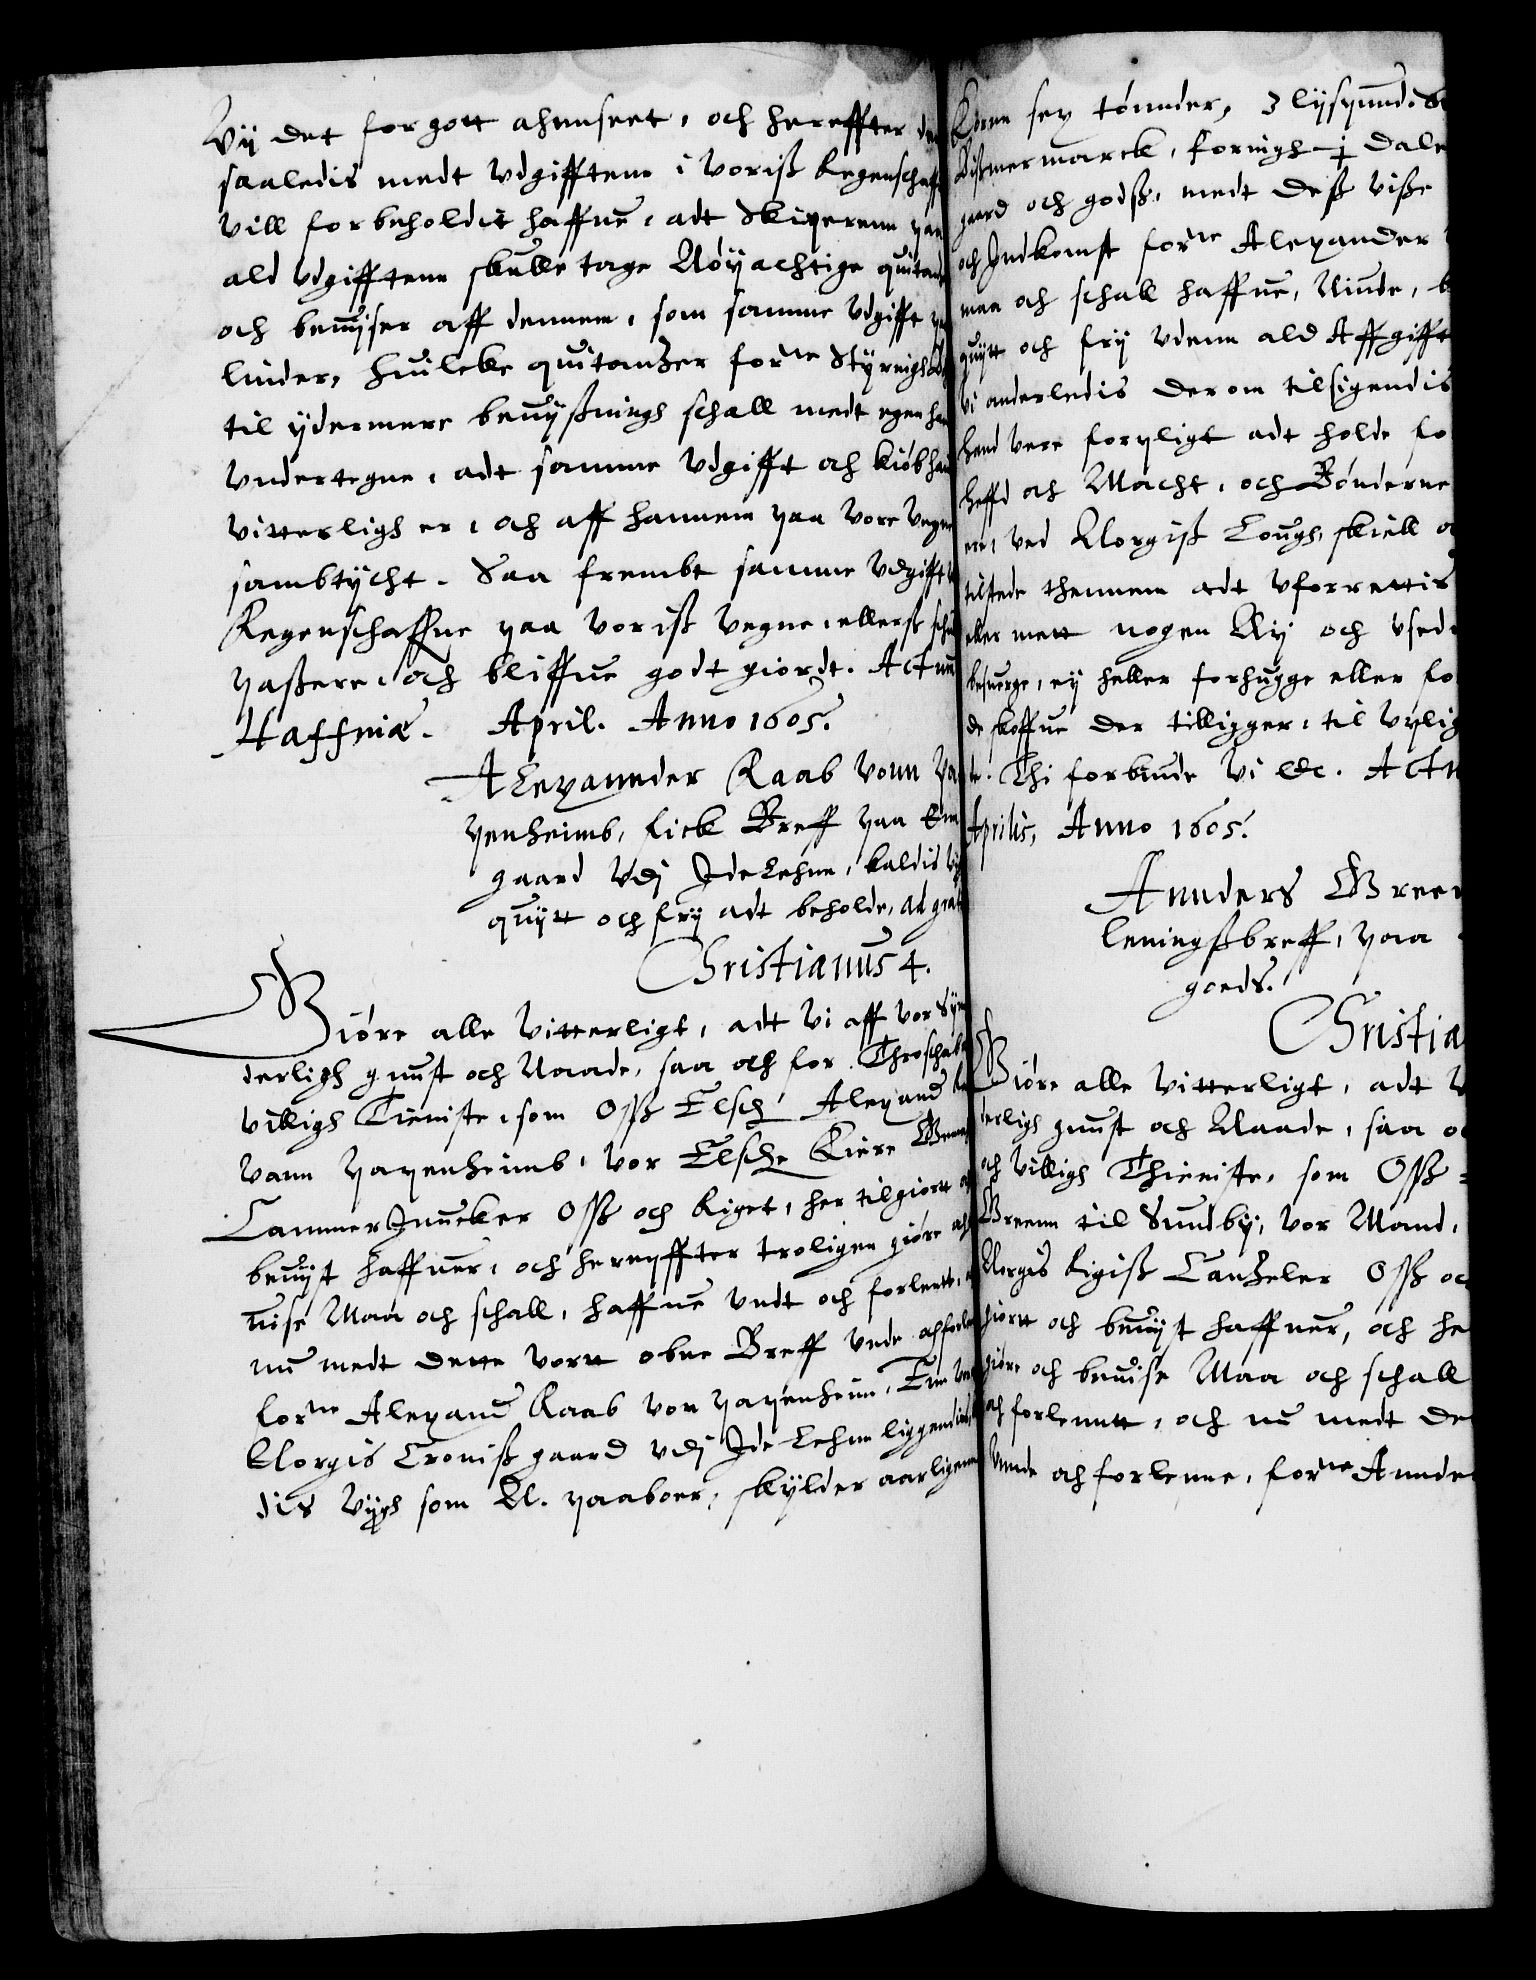 Vij det for gott ahnnseet, och hereffter
saaledis medt Vdgifftenn i Voriß Regenschaff
vill forbeholdit haffue, adt Skiperenn paa
ald Vdgifftenn skulle tage Nøyachtige quitan
och beuiser aff dennem, som samme Vdgifft
linder, huilcke quitantzer forne Styrnighol
til ydermere beuißningh schall medt egen
vndertegne, adt samme Vdgifft och kiøb
vitterligh er, och aff hannem paa vore vegne
sambtycht. Saa frembt samme Vdgifft
Regenschaffue paa voriß vegne, ellerß
paßere, och bliffue godt giordt. Actum
Haffniæ. April. Anno 1605.
Alexannder Raab vonn Pa
penheimb, fick Breff paa
gaard Vdj Ide Lehnn, kaldis
quytt och fry adt beholde, ad grat
Christianus 4.
Giøre alle vitterligt, adt Vi aff vor Syn
derligh gunst och Naade, saa och for Throschab
villigh Tieniste, som Oss Elsch Alexand
vann Papenheimb, vor Elsche Kiere
Cammer Junncker Oss och Riget, her til giortt
beuist haffuer, och hereffter troligen giøre
uise Maa och schall, haffue vndt och forlentt,
nu medt dette vortt obne Breff vnde och
forne Alexand Raab von Papenheim, Een
Norgis Croniß gaard vdj Ide Lehnn liggendis,
dis Vigh som N. paaboer, skylder aarligenn
Korn sex tønnder, 3 lyspund
Bißmermarck, foringh - j dale
gaard och godß, medt deß viße
och Indkomst forne Alexander
maa och schall haffue, Niude,
quytt och fry vdenn ald Affgifft
Vi anderledis derom tilsigendis
hand vere forpligt adt holde
heffd och Macht, och Bønderne
ved Norgiß Lough, skiell
tilstede thennem adt vforrettis
eller mett nogen Ny och vsed
besuerge, ey heller forhugge eller
de skoffue der tilligger, til vplig
Thi forbiude Vi etc. Actum
Aprilis, Anno 1605.
Annders Green
leningßbreff, paa
goeds.
Christia
Giøre alle vitterligt, adt V
derligh gunst och Naade, saa
och villigh Thieniste, som Oss
Greenn til Sundby, vor Mand,
Norgis Rigiß Cantzeler Oss
giortt och beuist haffuer, och
giøre och beuise Maa och schall
och forlenntt, och nu medt de
Vnnde och forlenne, forne Annde